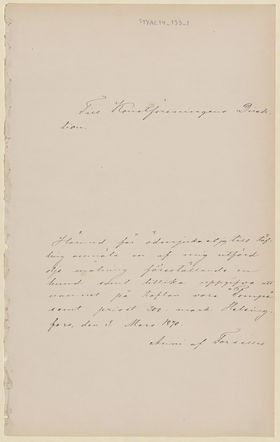 Till Konstföreningens Direk-
tion.
Härmed får ödmjukast till täf-
ling anmäla en af mig utförd
olje målning föreställande en
hund samt tillika uppgifva att
namnet på taflan vore
samt priset 300 mark. Helsing-
fors, den Mars 1890.
Anni af Forselles